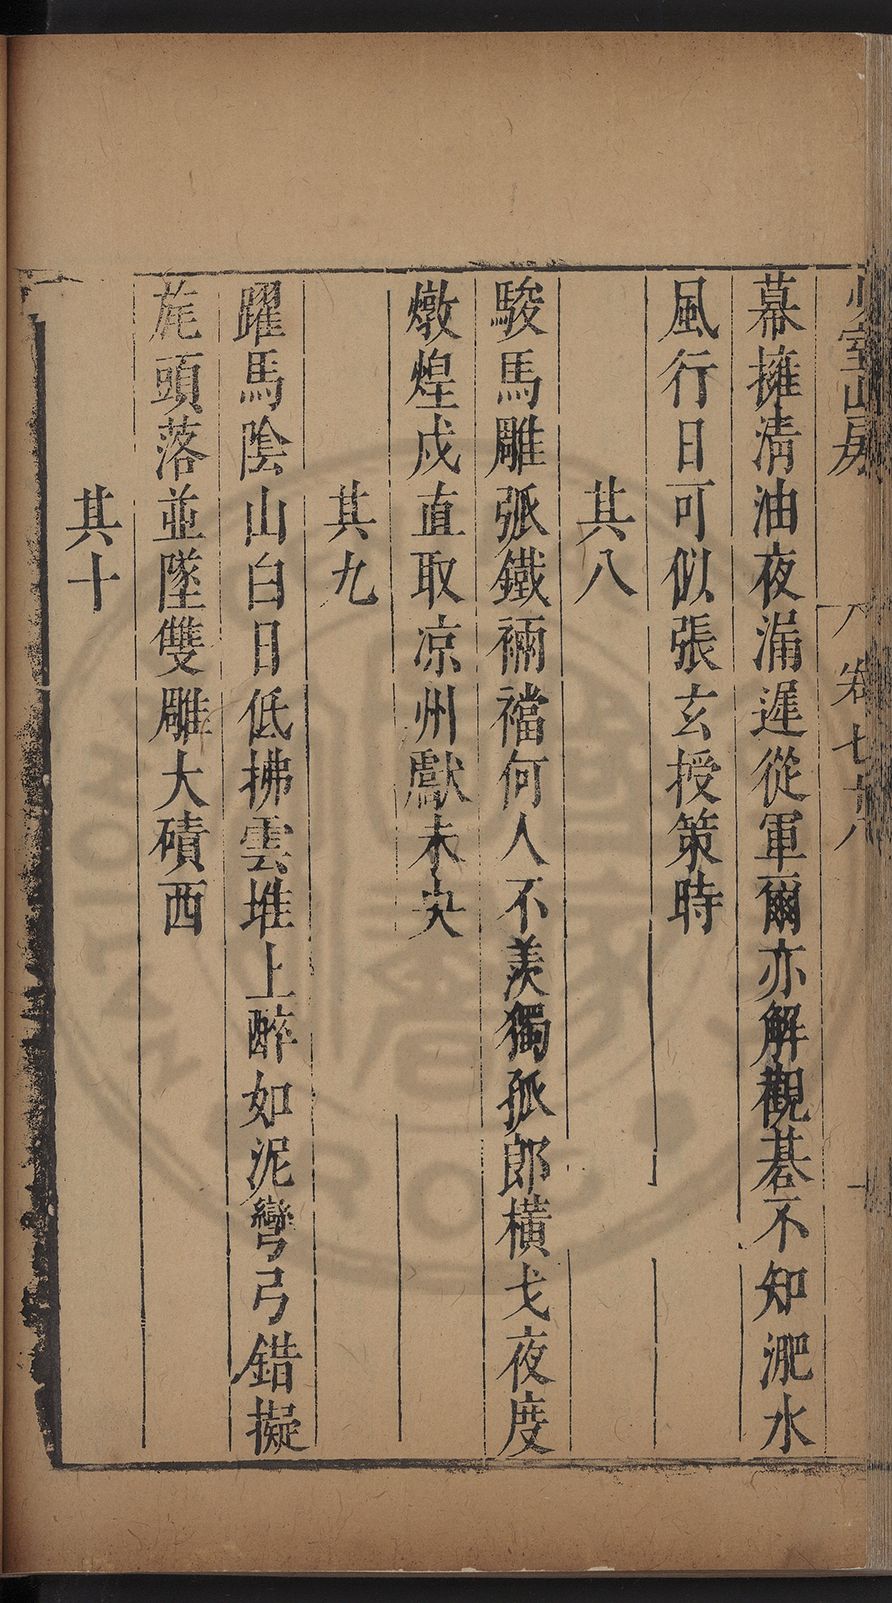 少室山房
卷七十八
幕擁清油夜漏遲從軍爾亦解觀碁不知淝水
風行日可似張玄授策時
其八
駿馬雕弧鐵裲襠何人不羨獨孤郎橫戈夜度
燉煌戍直取凉州獻未央
其九
躍馬陰山白日低拂雲堆上醉如泥彎弓錯擬
旄頭落並墜雙雕大磧西
其十